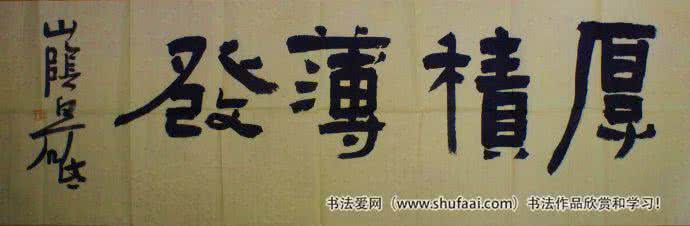 厚積薄發
山陰
书法爱网（www.shufaai.com）书法作品欣赏和学习！